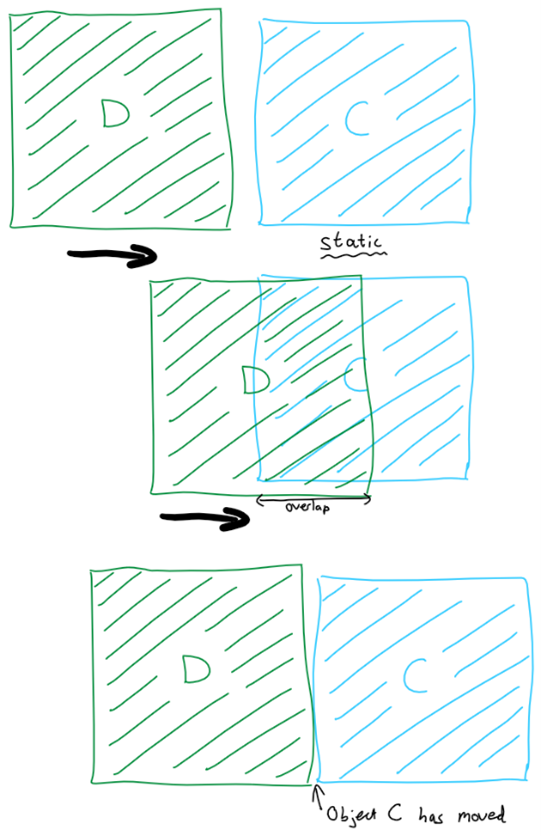 D
C
static
D
C
overlap
D
C
Object C has moved